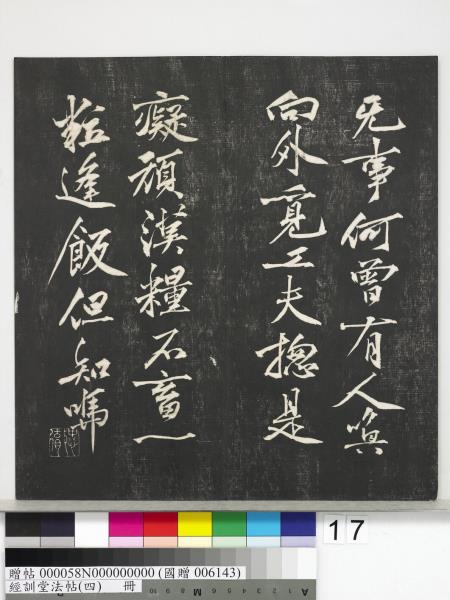 无事何曾有人喚
向外覓工夫摠是
癡頑漢糧不畜一
粒逢飯但知嗎
17
贈帖 000058N000000000 (國贈 006143)
經訓堂法帖(四) 冊